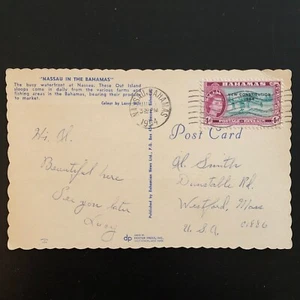 "NASSAU IN THE BAHAMAS"
The busy waterfront at Nassau. These Out Island
sloops come in daily from the various farms and
fishing areas in the Bahamas, bearing their produce
to market.
Color by
Hi, Al.
Beautiful here
See you later
Lucy
Published by Bahamian News Ltd., P.O. Box
dp
NASSAU BAHAMAS
NEW CONSTITUTION
BAHAMAS
Post Card
Al Smith
Dunstable Rd.
Westford, Mass
01886
U.S.A